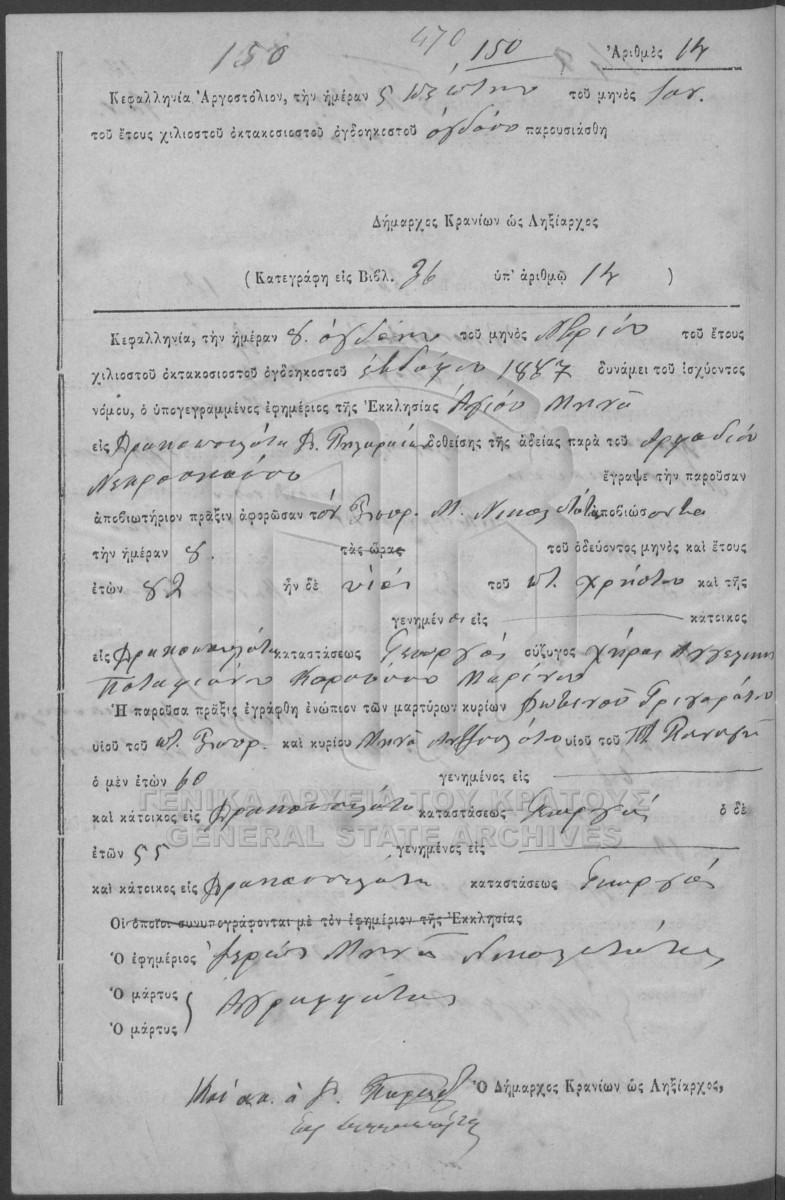 150 470 150 Ἀριθμὸς 14
Κεφαλληνία Ἀργοστόλιον, τὴν ἡμέραν τοῦ μηνὸς Ἰαν.
τοῦ ἔτους χιλιοστοῦ ὀκτακοσιοστοῦ ὀγδοηκοστοῦ ὀγδόου παρουσιάσθη
Δήμαρχος Κρανίων ὡς Ληξίαρχος
(Κατεγράφη εἰς Βιβλ. 36 ὑπ' ἀριθμῷ 14)
Κεφαλληνία, τὴν ἡμέραν 8. ὀγδόην τοῦ μηνὸς Νβρίου τοῦ ἔτους
χιλιοστοῦ ὀκτακοσιοστοῦ ὀγδοηκοστοῦ ἑβδόμου 1887 δυνάμει τοῦ ἰσχύοντος
νόμου, ὁ ὑπογεγραμμένος ἐφημέριος τῆς Ἐκκλησίας Ἁγίου Μηνᾶ
εἰς Δρακοπουλάτα δοθείσης τῆς ἀδείας παρὰ τοῦ
ἔγραψε τὴν παροῦσαν
ἀποβιωτήριον πρᾶξιν ἀφορῶσαν τὸν Σπυρ. Μ. ἀποβιώσαντα
τὴν ἡμέραν 8. τὰς ὥρας τοῦ ὁδεύοντος μηνὸς καὶ ἔτους
ἐτῶν 82 ἦν δὲ υἱὸς τοῦ ποτ. Χρήστου καὶ τῆς
γενημέν ος εἰς κάτοικος
εἰς Δρακοπουλάτα καταστάσεως Γεωργὸς σύζυγος χήρας Ἀγγελικῆς
Μαρίνου
Ἡ παροῦσα πρᾶξις ἐγράφθη ἐνώπιον τῶν μαρτύρων κυρίων Φωτεινοῦ Γρηγοράτου
υἱοῦ τοῦ ποτ. Σπυρ. καὶ κυρίου Μηνᾶ υἱοῦ τοῦ ποτ. Παναγῆ
ὁ μὲν ἐτῶν 60 γενημένος εἰς
ΓΕΝΙΚΑ ΑΡΧΕΙΑ ΤΟΥ ΚΡΑΤΟΥΣ
καὶ κάτοικος εἰς Δρακοπουλάτα καταστάσεως Γεωργὸς ὁ δὲ
GENERAL STATE ARCHIVES
ἐτῶν 55 γενημένος εἰς
καὶ κάτοικος εἰς Δρακοπουλάτα καταστάσεως Γεωργὸς
Οἱ ὁποῖοι συνυπογράφονται μὲ τὸν ἐφημέριον τῆς Ἐκκλησίας
Ὁ ἐφημέριος Ἱερεὺς Μηνᾶς Νικολετάτος
Ὁ μάρτυς
Ἀγράμματοι
Ὁ μάρτυς
Ὁ Δήμαρχος Κρανίων ὡς Ληξίαρχος,